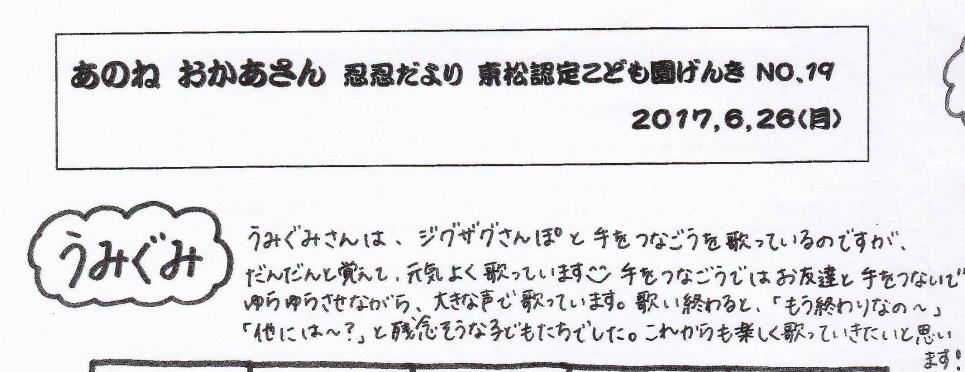 あのね おかあさん 忍忍だより 東松認定こども園げんき NO.19
2017,6,26(月)
うみぐみ
うみぐみさんは、ジグザグさんぽと手をつなごうを歌っているのですが、
だんだんと覚えて、元気よく歌っています 手をつなごうではお友達と手をつないで
ゆらゆらさせながら、大きな声で歌っています。歌い終わると、「もう終わりなの〜」
「他には〜?」と残念そうな子どもたちでした。これからも楽しく歌っていきたいと思い
ます!